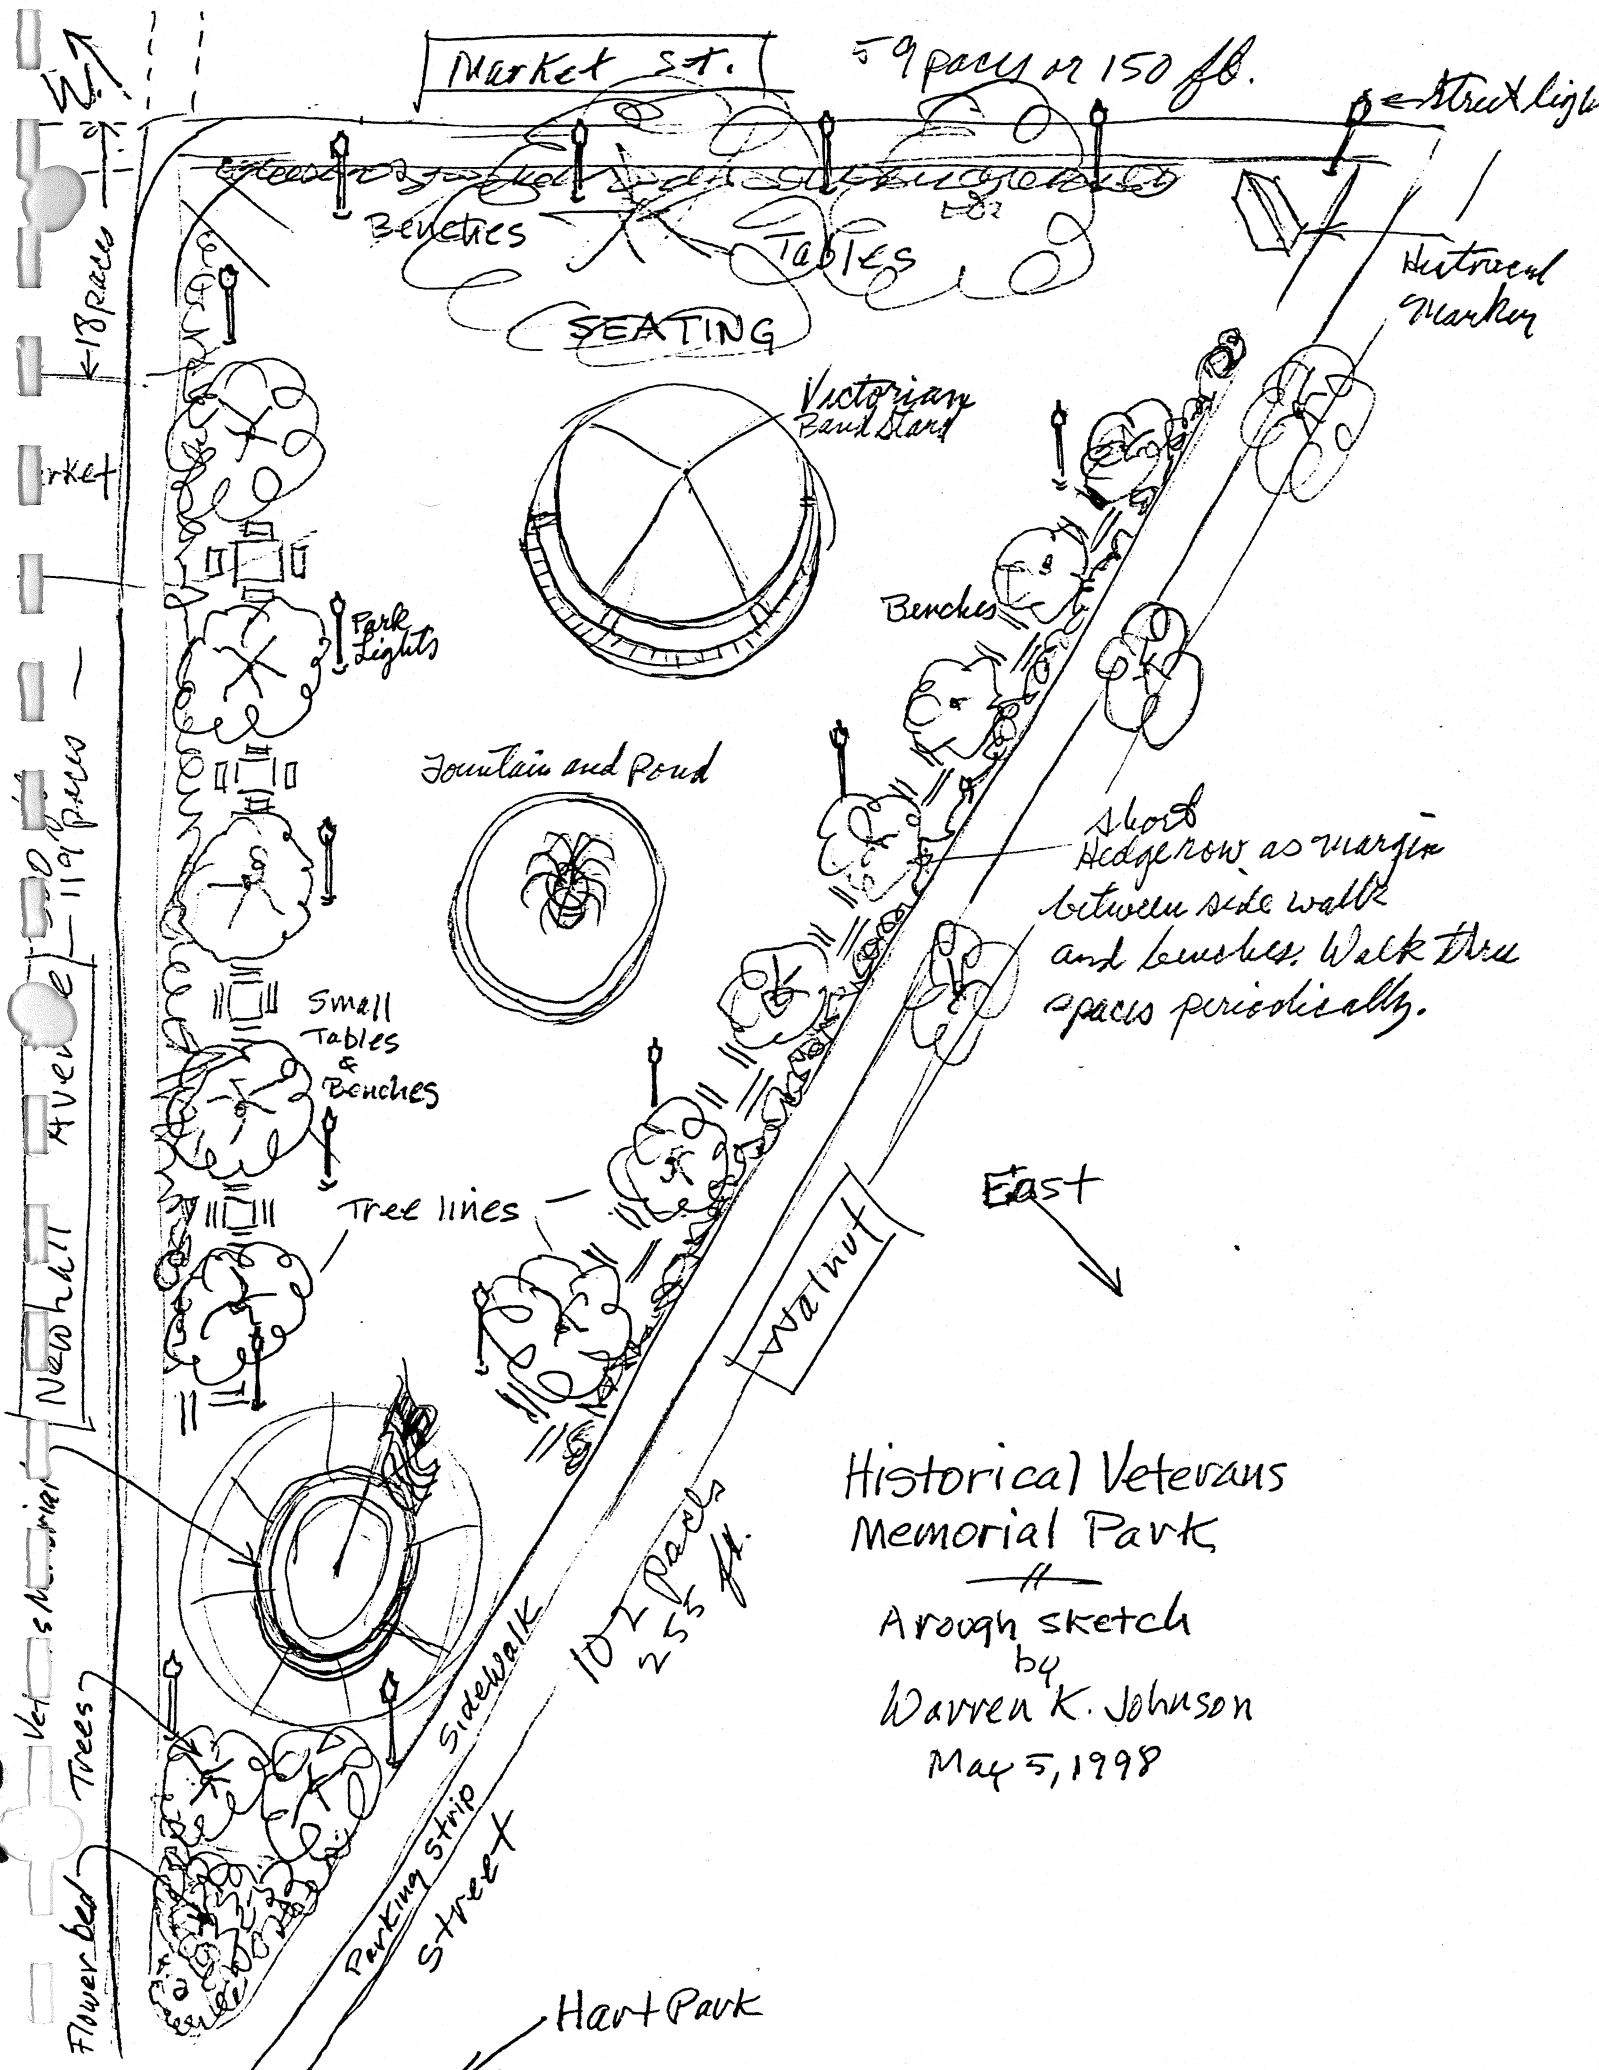 Market St.
59 paces or 150 ft.
N
Benches
Tables
SEATING
Historical
Marker
18 paces
rket
Victorian
Band Stand
Benches
Park
Lights
Fountain and Pond
119 paces
Short
Hedgerow as margin
between side walk
and benches. Walk thru
spaces periodically.
Small
Tables
&
Benches
Newhall
Tree lines
East
Walnut
Historical Veterans
Memorial Park
A rough sketch
by
Warren K. Johnson
May 5, 1998
102 paces
255 ft.
Sidewalk
Parking Strip
Street
Trees
Flower bed
Hart Park